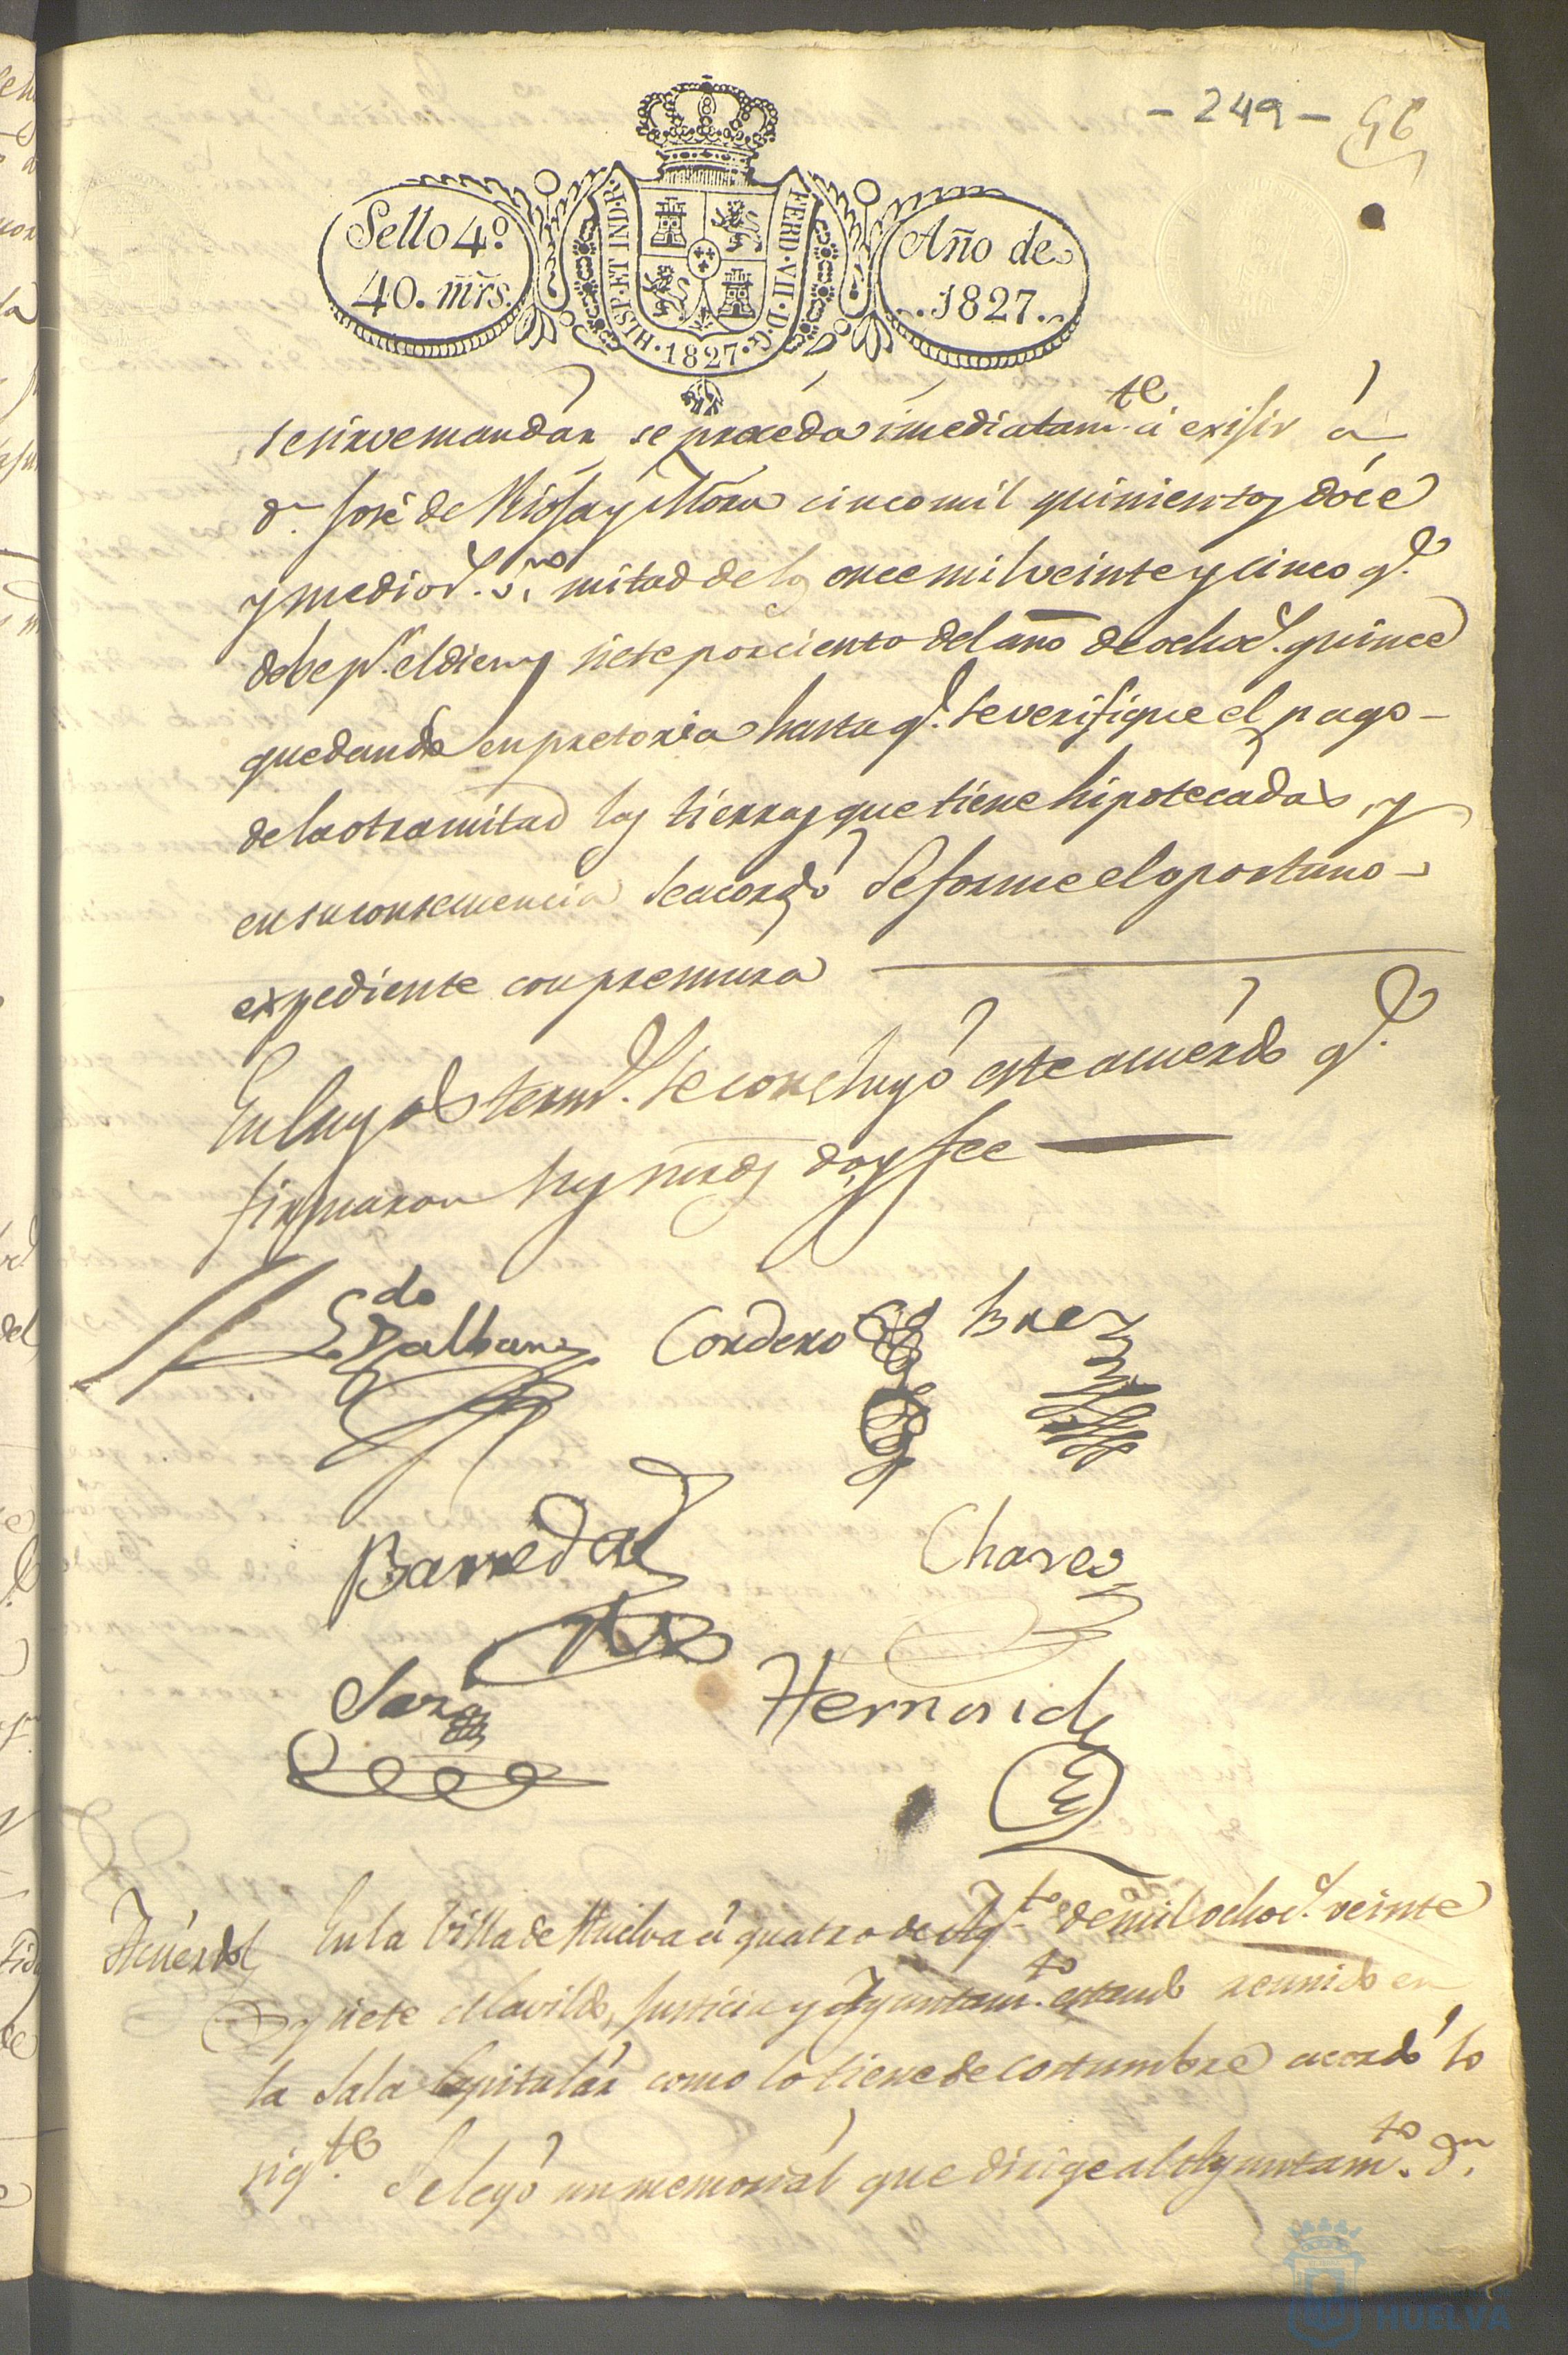 - 249 -
Sello 4º
40. mrs.
HISP. ET IND. R.
FERD. VII. D. G.
1827
Año de
1827.
se sirve mandar se proceda imediatamte á exijir á
Dn José de Mióra y Mora cinco mil quinientos dóce
y medio rs. vno mitad de los once mil veinte y cinco q.
debe pr. el diez y siete por ciento del año de ochocs. quince
quedando en pretoria hasta q. se verifique el pago -
de la otra mitad las tierras que tiene hipotecadas, y
en su consecuencia se acordó se forme el oportuno -
expediente con premura
En cuyos termos. se concluyó este acuerdo q.
firmaron sus mrds doy fee
Ldo
Dalbani
Cordero
Baez
Barreda
Chaves
Sara
Hernand
Acuérdo
En la Villa de Huelva á quatro de Agto de mil ochocs. veinte
y siete el cavildo, Justicia y Ayuntamto. estando reunido en
la Sala Capitulár como lo tiene de costumbre acordó lo
sigte. Se leyó un memoriál que dirige al Ayuntamto. Dn.
HUELVA